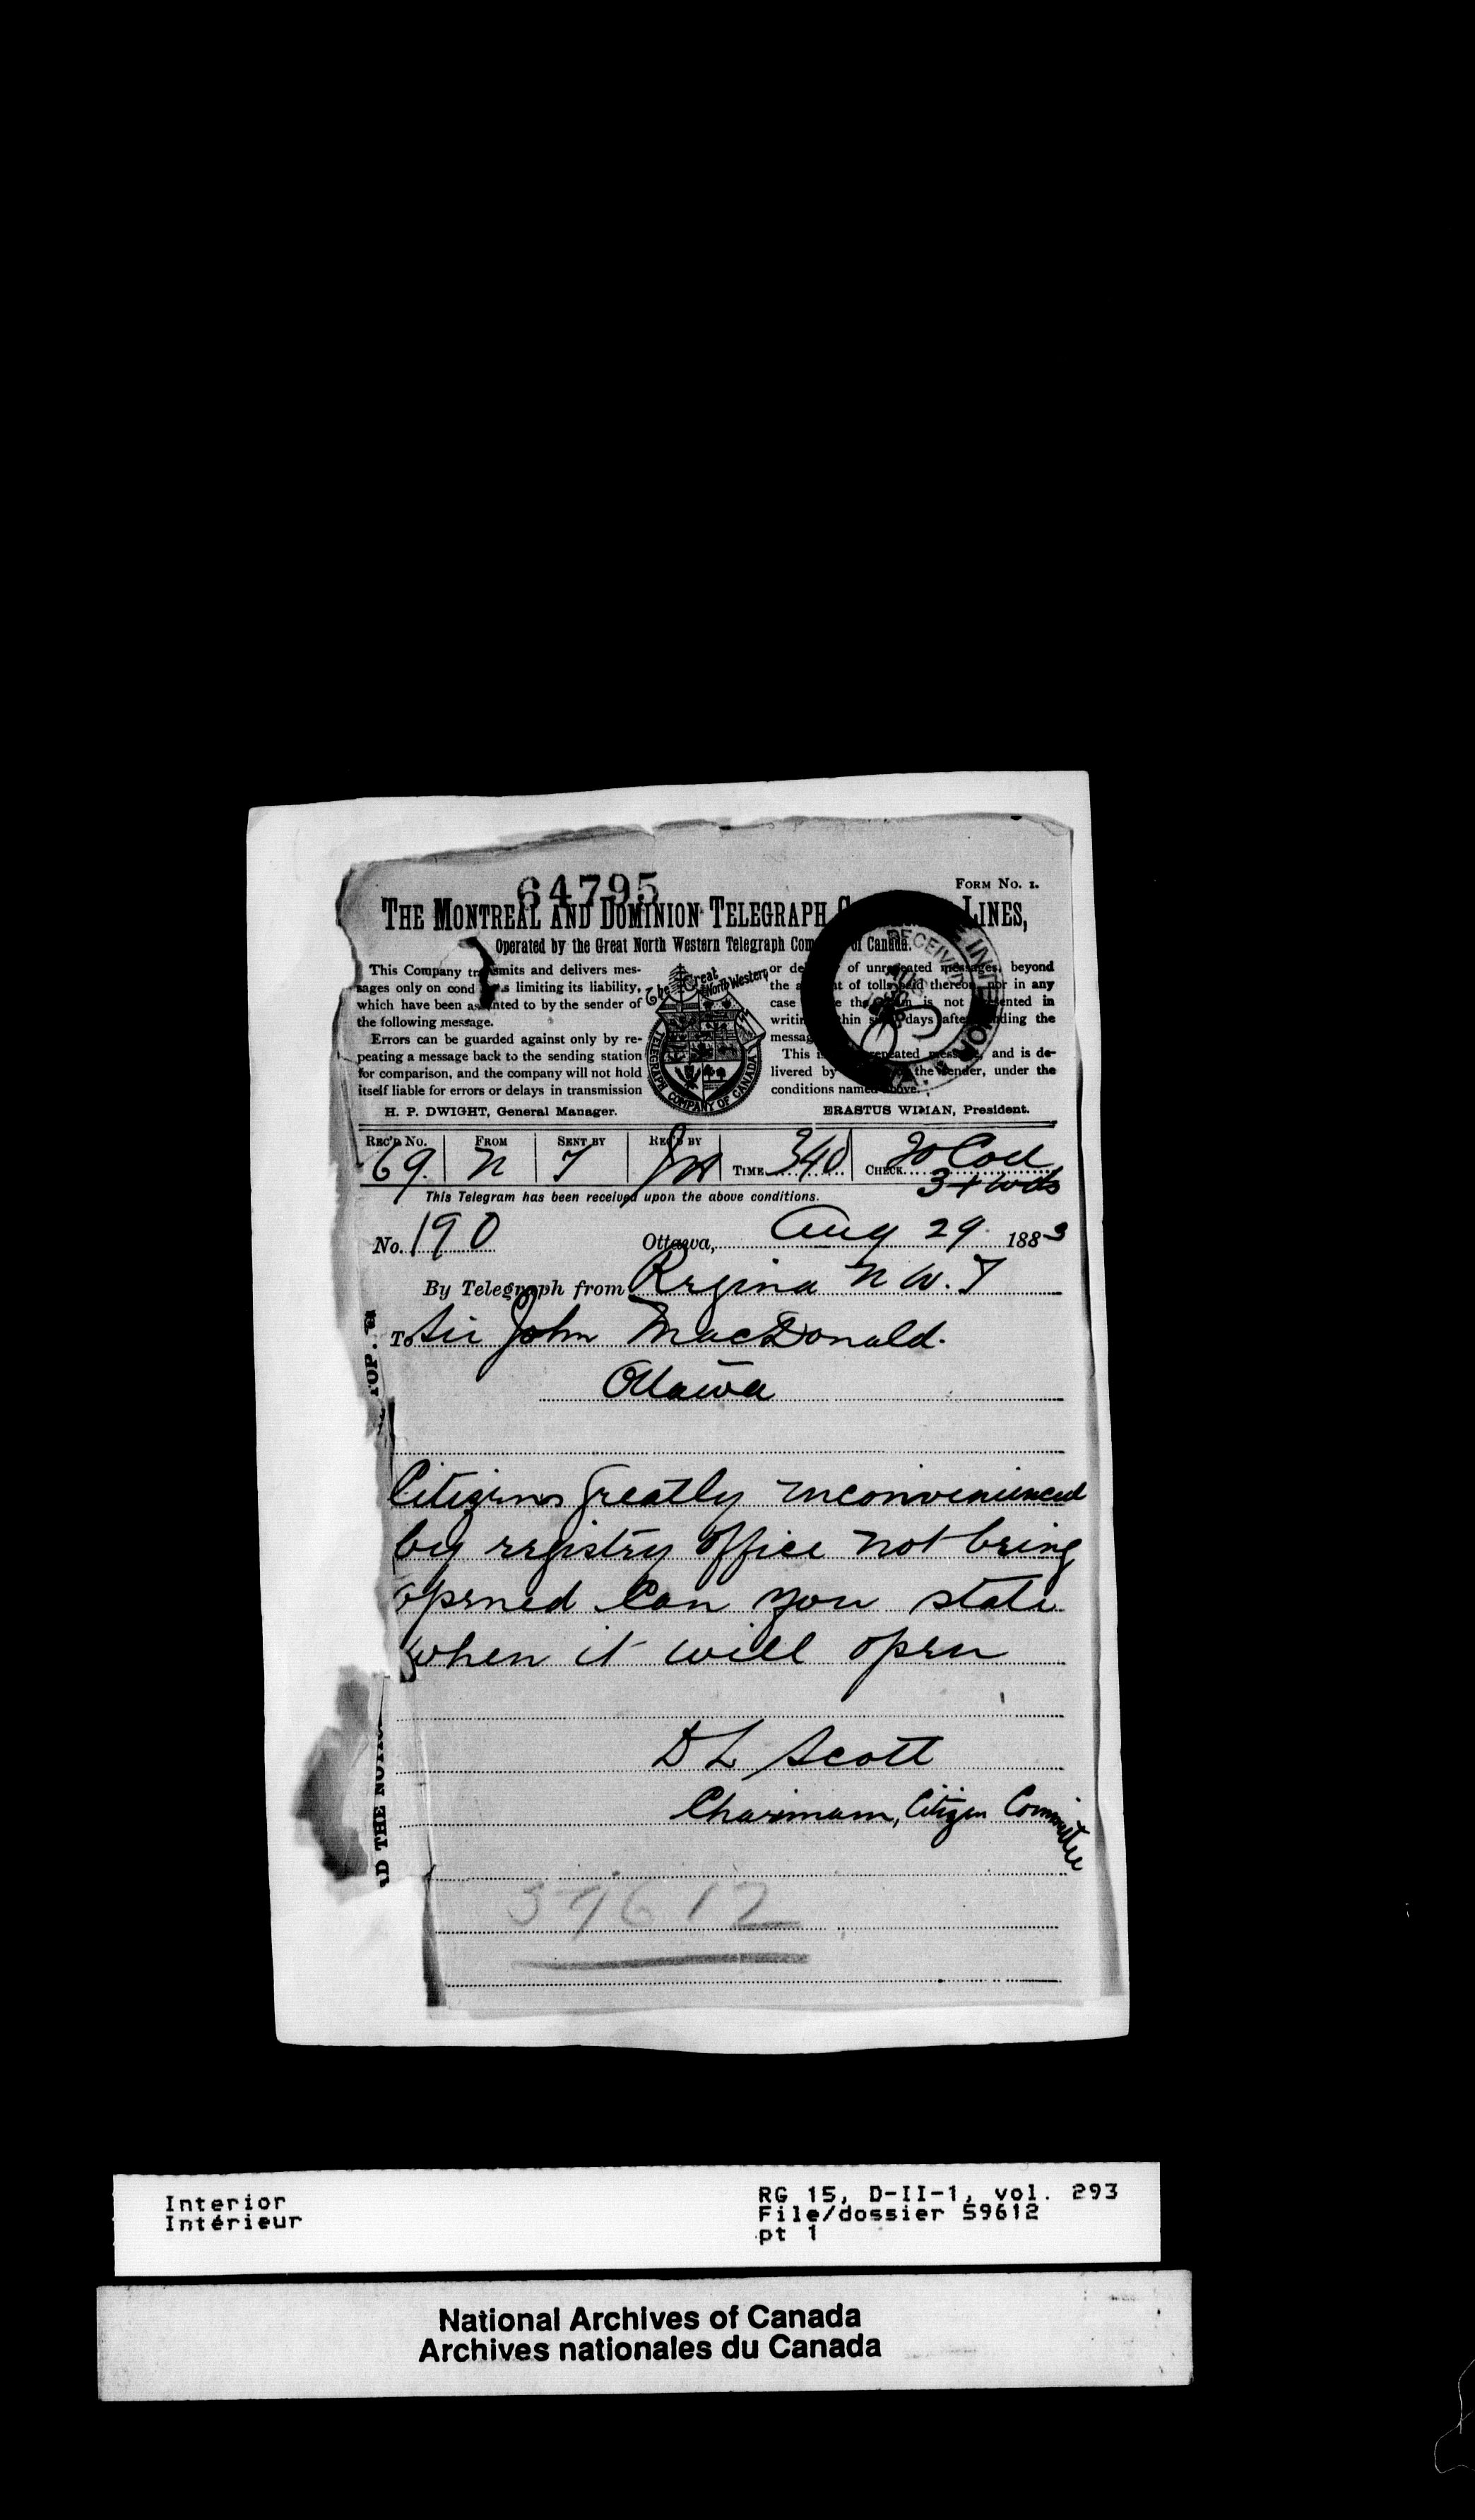 64795
FORM No. 1.
THE MONTREAL AND DOMINION TELEGRAPH LINES,
Operated by the Great North Western Telegraph Com of Canada.
This Company transmits and delivers mes-
sages only on cond s limiting its liability,
which have been assented to by the sender of
the following message.
Errors can be guarded against only by re-
peating a message back to the sending station
for comparison, and the company will not hold
itself liable for errors or delays in transmission
H. P. DWIGHT, General Manager.
The Great North Western
TELEGRAPH COMPANY OF CANADA
or de of unrepeated messages, beyond
the a t of tolls paid thereon, nor in any
case e the is not presented in
writin thin days after sending the
messag
This i repeated message, and is de-
livered by the sender, under the
conditions named above.
ERASTUS WIMAN, President.
RECEIVED
AUG
REC'D No. FROM SENT BY REC'D BY TIME CHECK
69. N T 340 20 Coll
wds
This Telegram has been received upon the above conditions.
No. 190 Ottawa, Aug 29 1883
By Telegraph from Regina N W. T
To Sir John MacDonald.
Ottawa
Citizens greatly inconvenienced
by registry office not being
opened Can you state
when it will open
D L Scott
Chairman, Citizen Committee
59612
D THE NOTIC
TOP.
Interior
Intérieur
RG 15, D-II-1, vol. 293
File/dossier 59612
pt 1
National Archives of Canada
Archives nationales du Canada